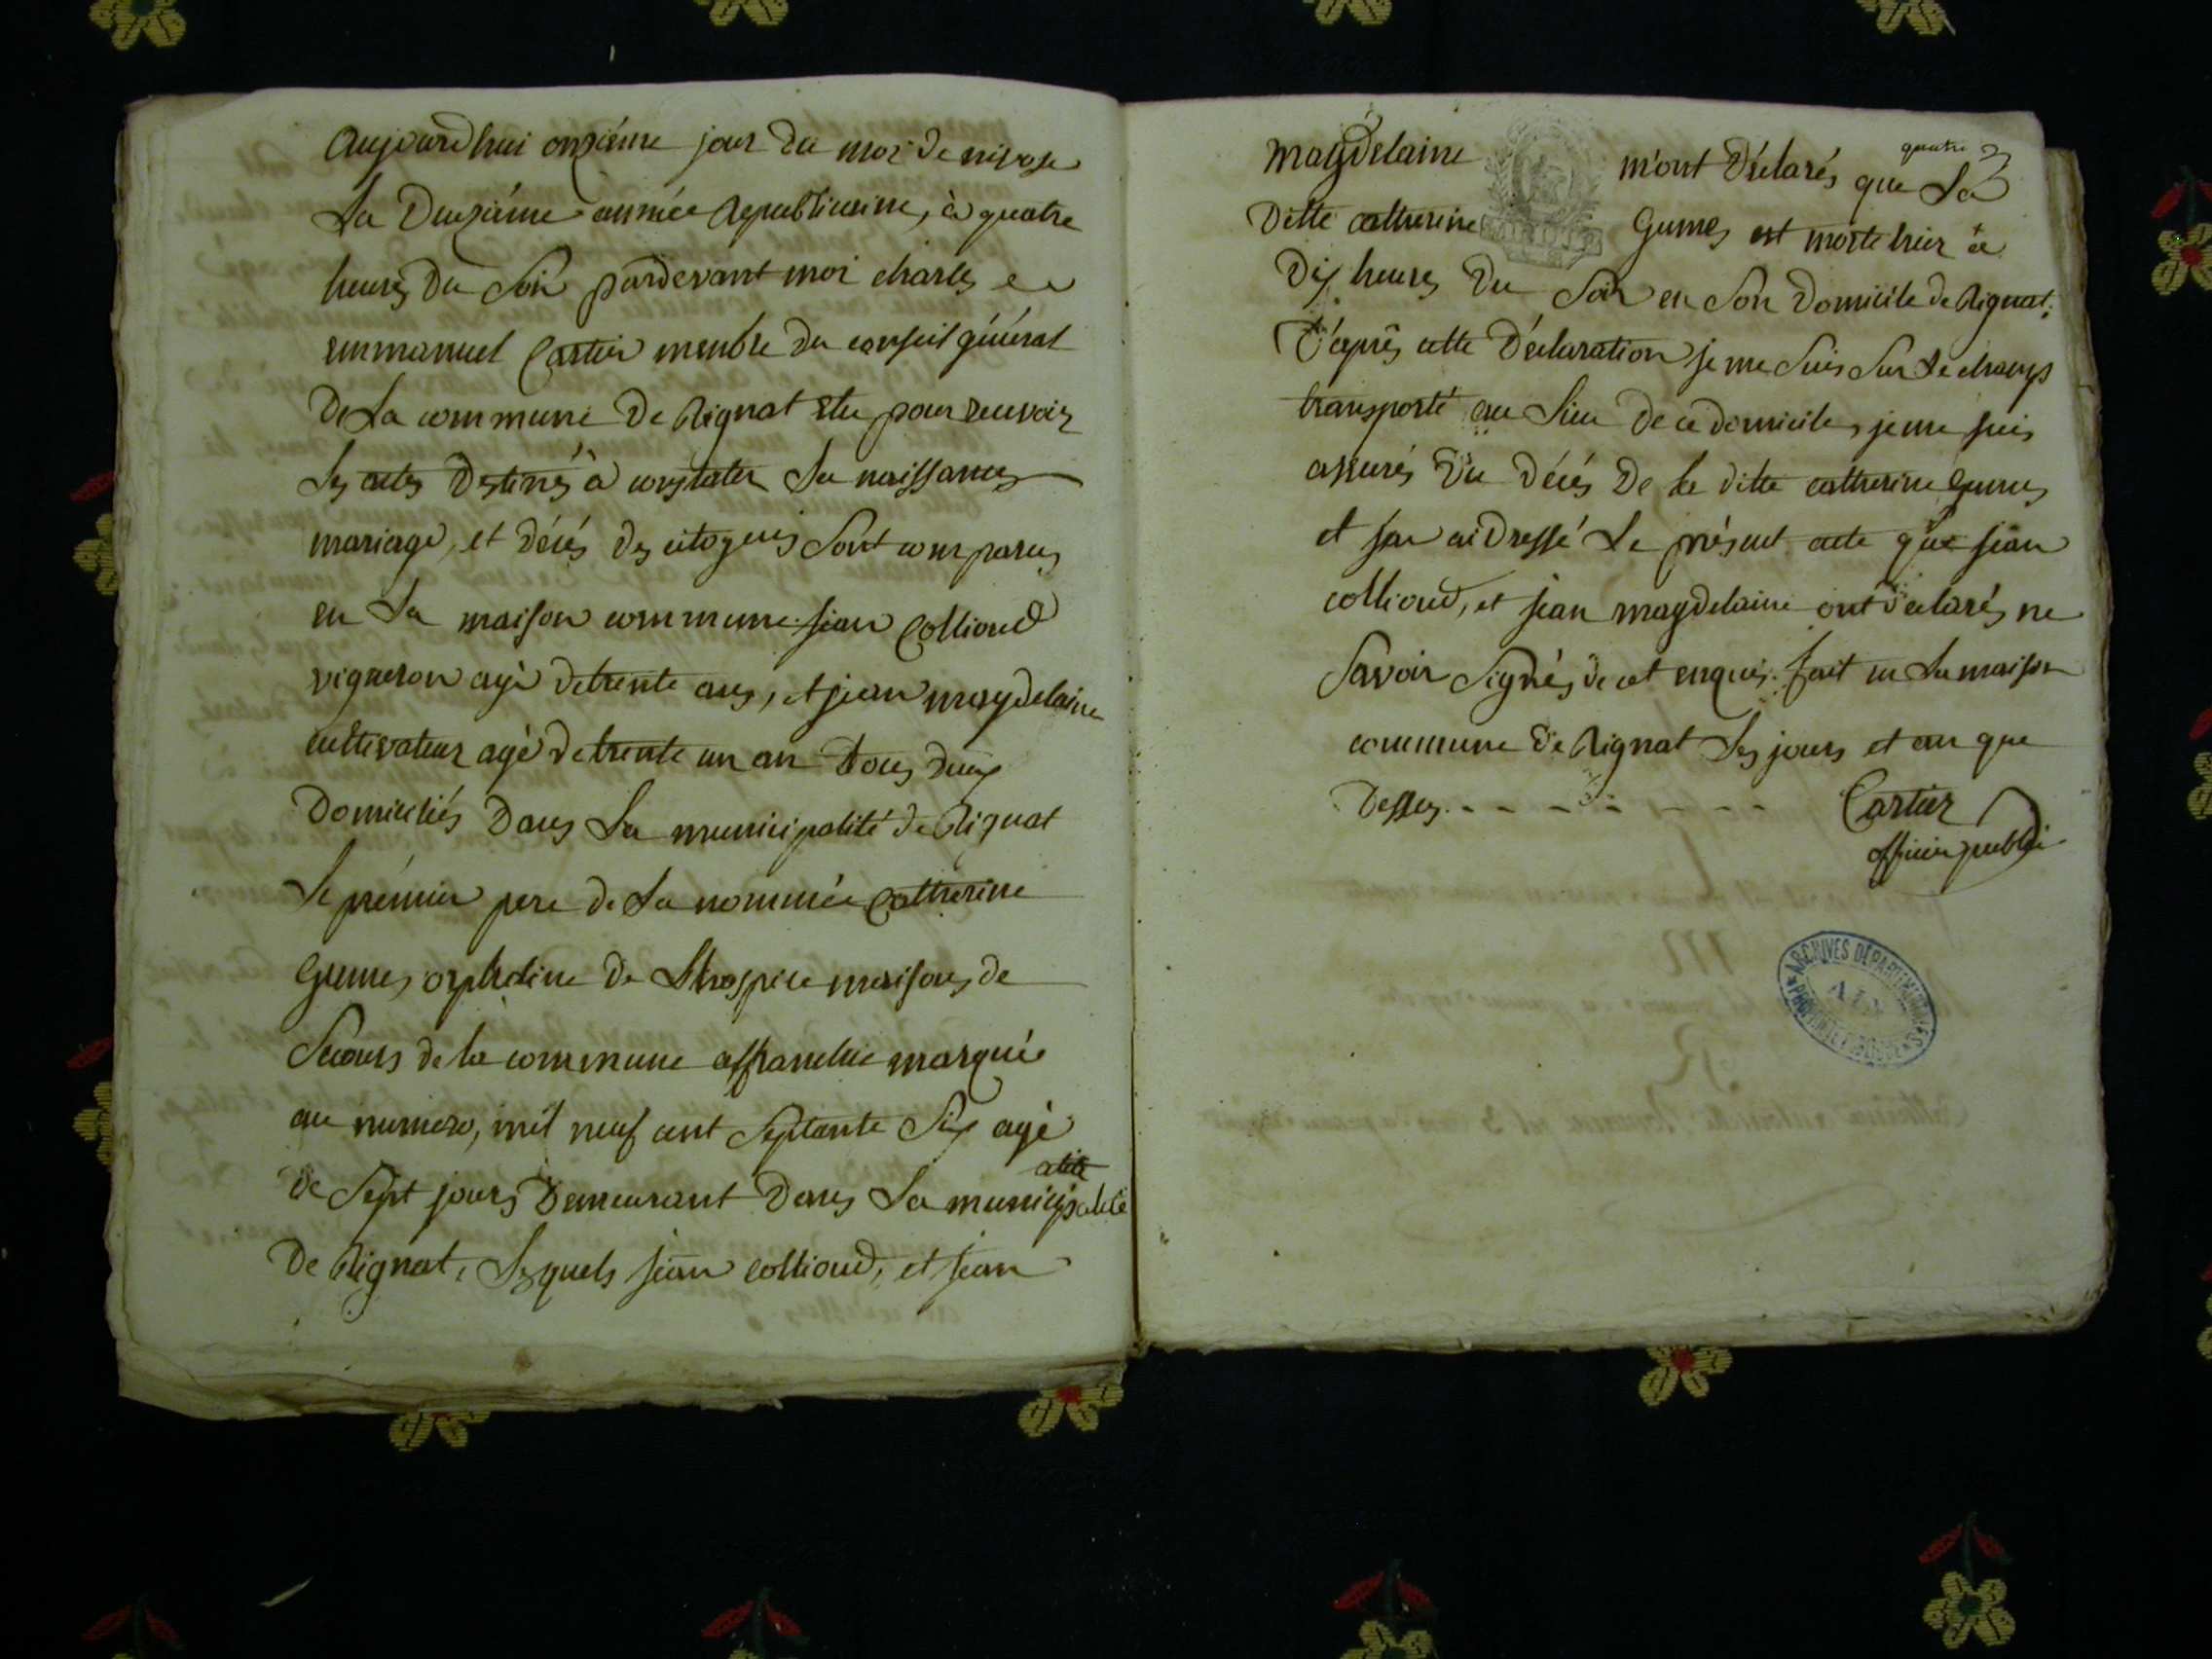 Aujourdhui onzième jour du moi de nivose
La Deuxième année Republicaine, à quatre
heures Du Soir pardevant moi charles
emmanuel Cartier membre Du conseil général
De La commune De Rignat élu pour recevoir
Les actes Destinés à constater La naissances
mariage, et décés Des citoyens Sont comparus
en La maison commune jean Collioud
vigneron agé detrente ans, et jean magdelaine
cultivateur agé detrente un an tous deux
Domiciliés Dans La municipalité de Rignat
Le prémier pere de La nommée Catherine
Gumes orpheline De Lhospice maisons de
Secours de la commune affranchie marquée
au numero, mil neuf cent Septante Six agé
de Sept jours Demeurant Dans La municipalité
De Rignat, Lesquels jean Collioud, et jean
magdelaine m'ont Déclarés que La
quatre
Ditte catherine Gumes est morte hier à
Dix heures Du Soir en Son Domicile de Rignat;
D'après cette Déclaration je me Suis Sur Le champs
transporté au Lieu De ce domicile, je me suis
assurés Du Décés De la ditte catherine Gumes
et j'en ai Dressé Le présent acte que jean
collioud, et jean magdelaine ont déclarés ne
Savoir Signés de cet enquis. fait en La maison
commune de Rignat Les jours et an que
Dessus - - - - - - - - Cartier
officier public
ARCHIVES DÉPARTEMENTALES
AIN
PROPRIÉTÉ PUBLIQUE